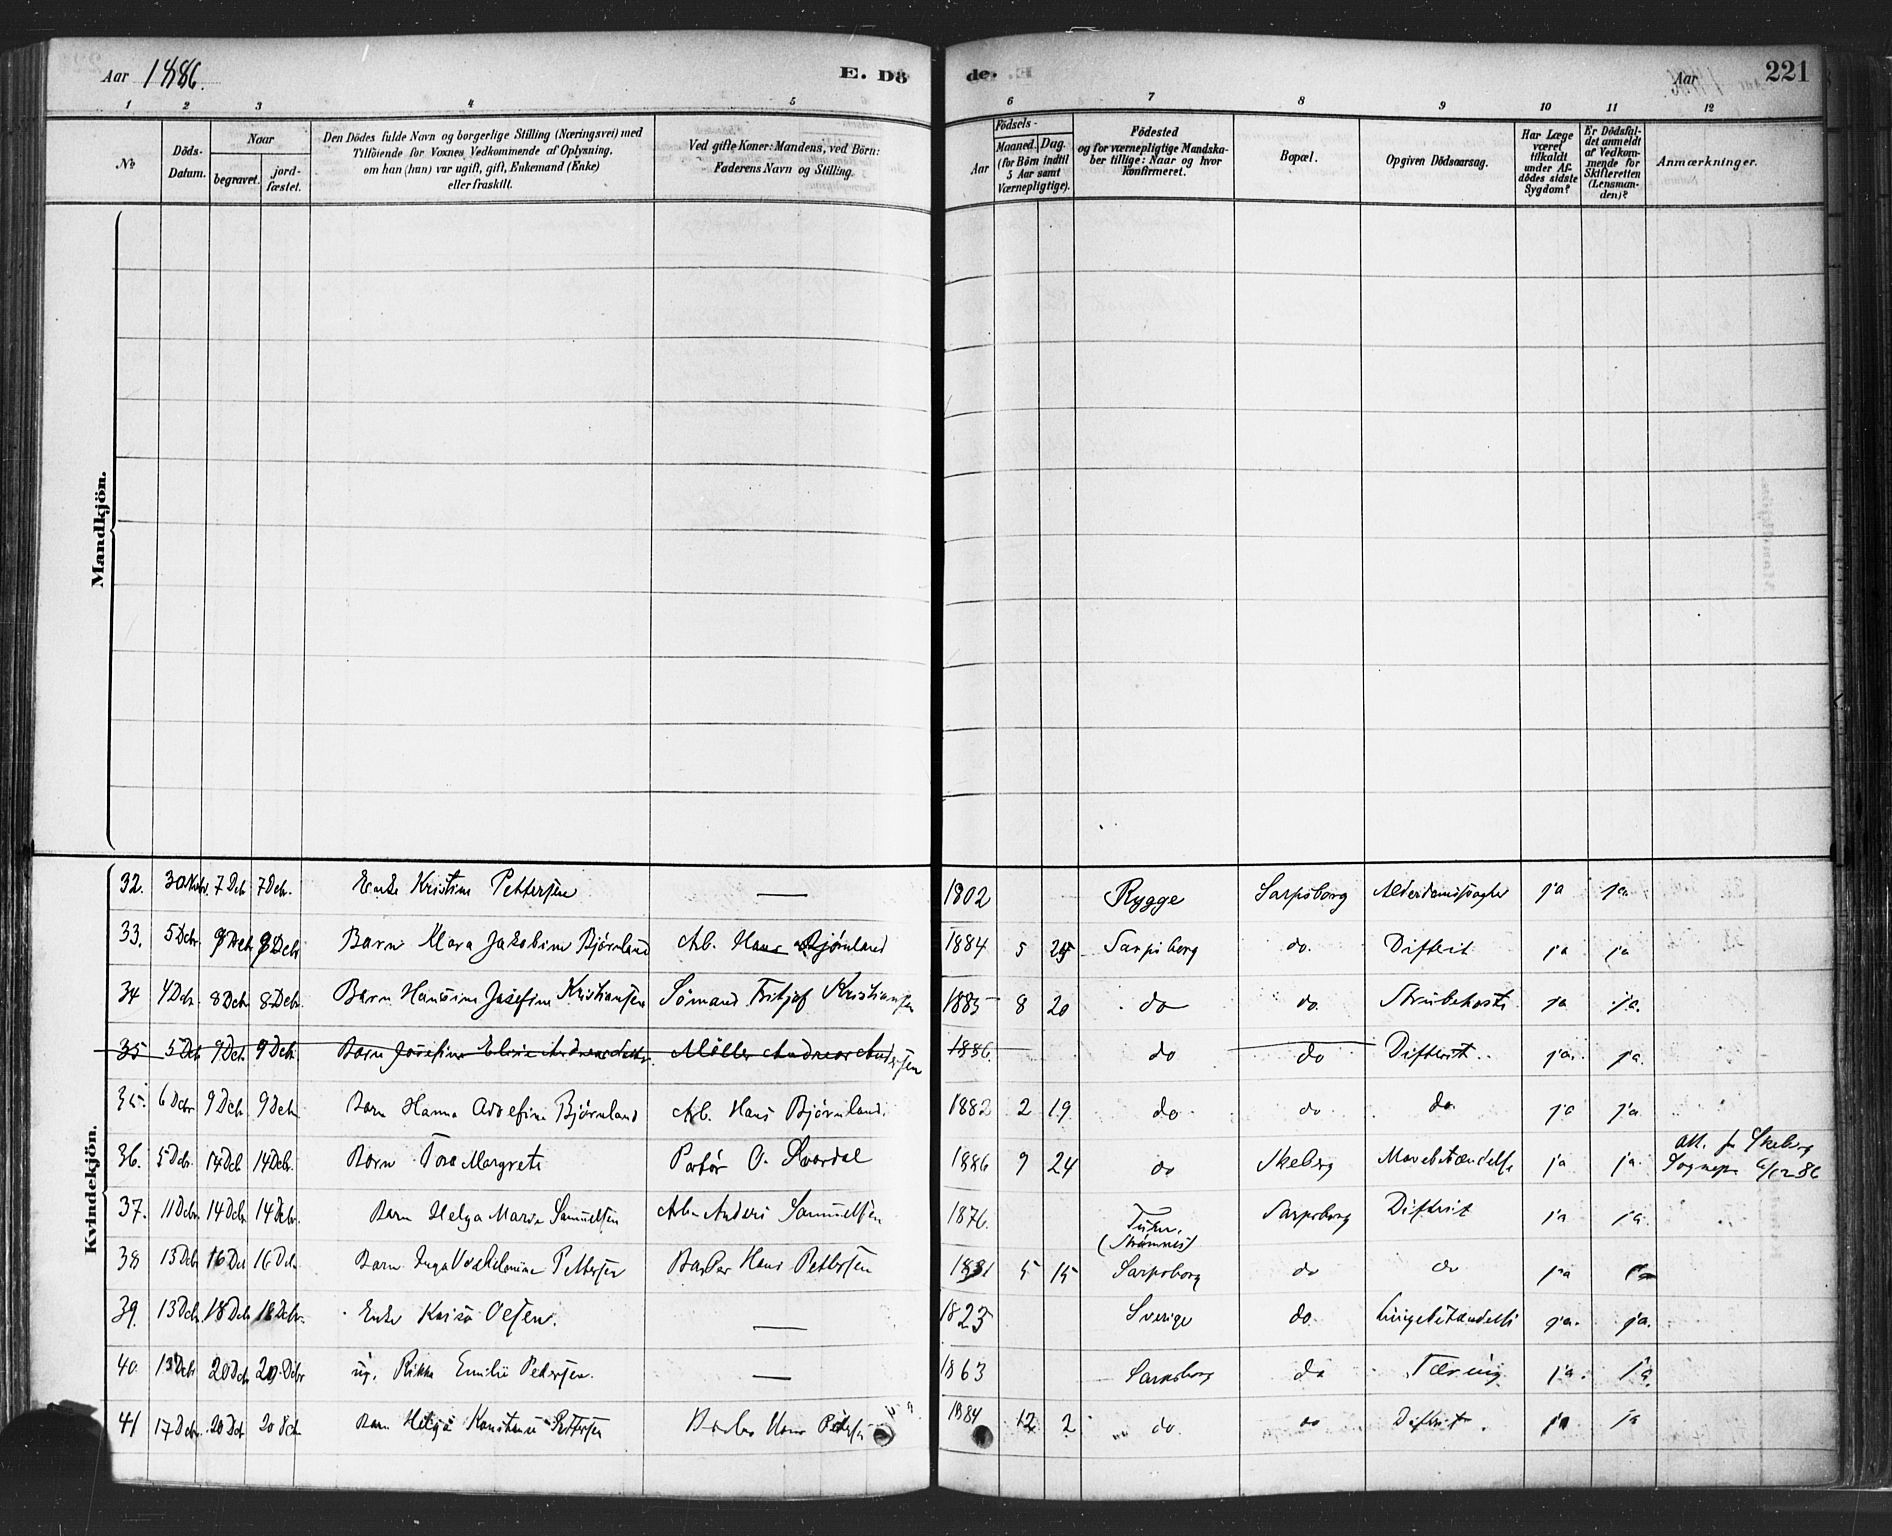 Aar 1886. E. Dö de. Aar 221
1 2 3 4 5 6 7 8 9 10 11 12
No
Döds-Datum.
Naar
begravet.
jord-fæstet.
Den Dödes fulde Navn og borgerlige Stilling (Næringsvei) med
Tilföiende for Voxnes Vedkommende af Oplysning,
om han (hun) var ugift, gift, Enkemand (Enke)
eller fraskilt.
Ved gifte Koner: Mandens, ved Börn:
Faderens Navn og Stilling.
Födsels-
Aar
Maaned. Dag.
(for Börn indtil
5 Aar samt
Værnepligtige).
Födested
og for værnepligtige Mandska-
ber tillige: Naar og hvor
konfirmeret.
Bopæl.
Opgiven Dödsaarsag.
Har Læge
været
tilkaldt
under Af-
dödes sidste
Sygdom?
Er Dödsfal-
det anmeldt
af Vedkom-
mende for
Skifteretten
(Lensman-
den)?
Anmærkninger.
Mandkjön.
Kvindekjön.
32. 30 Novbr. 7 Dcb 7 Dcb. Enke Kristine Pettersen — 1802 Rygge Sarpsborg Alderdomssvaghed ja ja
33. 5 Dcbr. 8 Dcb 8 Dcb Barn Mara Jakobine Bjørnland Arb. Hans Bjørnland 1884 5 25 Sarpsborg do. Difterit ja ja
34 4 Dcb. 8 Dcb 8 Dcb. Barn Hansine Josefine Kristiansen Sømand Fritjof Kristiansen 1885 8 20 do do. Strubehoste ja ja.
35 5 Dcb 9 Dcb. 9 Dcb. Barn Josefine Elise Andreasdatter. Møller Andreas Andersen 1886. do do Difterit. ja. ja.
35. 6 Dcbr 9 Dcb. 9 Dcb Barn Hanna Adolefine Bjørnland Arb. Hans Bjørnland. 1882 2 19 do do do. ja ja
36. 5 Dcbr. 14 Dcb 14 Dcbr. Barn Tora Margrete Portør O. Kvardal 1886 9 24 do Skeberg Mavebetændelse ja ja. Att. fr Skeberg
Sognepr. 6/12 86
37. 11 Dcbr. 14 Dcbr. 14 Dcbr. Barn Helga Marie Samuelsen Arb. Anders Samuelsen 1876. Tune.
(Strømnes) Sarpsborg Difterit ja ja.
38 13 Dcb 16 Dcb 16 Dcb Barn Inga Vilhelmine Pettersen Barber Hans Pettersen 1881 5 15 Sarpsborg do do ja ja
39. 13 Dcb. 18 Dcb 18 Dcbr. Enke Kaisa Olsen. — 1823 Sverige do. Lungebetændelse ja. ja.
40. 13 Dcb 20 Dcb 20 Dcbr ug. Rikka Emilie Petersen. — 1863 Sarpsborg do Tæring ja. ja.
41 17 Dcbr. 20 Dcb. 20 Dcb Barn Helga Konstanse Pettersen Barber Hans Pettersen 1884 12 2 do. do Difterit. ja ja